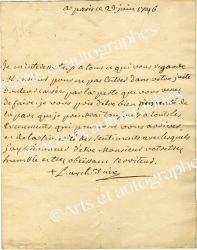 a paris ce 23 juin 1746
Je m'interesse trop a tout ce qui vous regarde
Monsieur pour ne pas entrer dans votre juste
douleur causée par la perte que vous venez
de faire, je vous prie d'etre bien persuadé de
la part que je prendrai toujours a tous les
evenements qui pourront vous arriver,
et de la sincerité des sentiments avec lesquels
j'ay l'honneur d'etre Monsieur votre tres
humble et tres obeissant serviteur
Arts et autographes